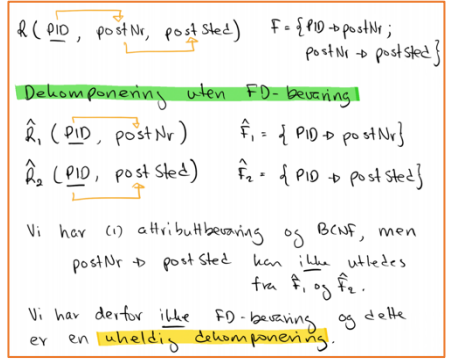 R ( PID , postNr, postSted ) F = { PID → postNr ;
postNr → postSted }
Dekomponering uten FD-bevaring
R̂₁ ( PID , postNr ) F̂₁ = { PID → postNr }
R̂₂ ( PID , postSted ) F̂₂ = { PID → postSted }
Vi har (1) attributtbevaring og BCNF, men
postNr → postSted kan ikke utledes
fra F̂₁ og F̂₂.
Vi har derfor ikke FD-bevaring og dette
er en uheldig dekomponering.